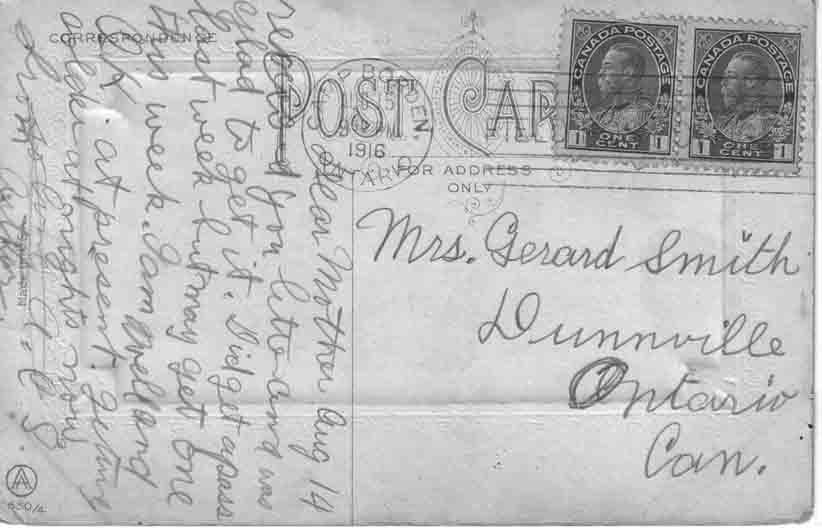 CORRESPONDENCE
POST CARD
FOR ADDRESS
ONLY
BORDEN
15
1916
ONTARIO
CANADA POSTAGE
1 ONE CENT 1
CANADA POSTAGE
1 ONE CENT 1
Mrs. Gerard Smith
Dunnville
Ontario
Can.
Dear Mother Aug 14
received you letter and was
glad to get it. Didget a pass
last week but may get one
this week. I am well and
O.K. at present. Getting
at nights now
from
A
630/4